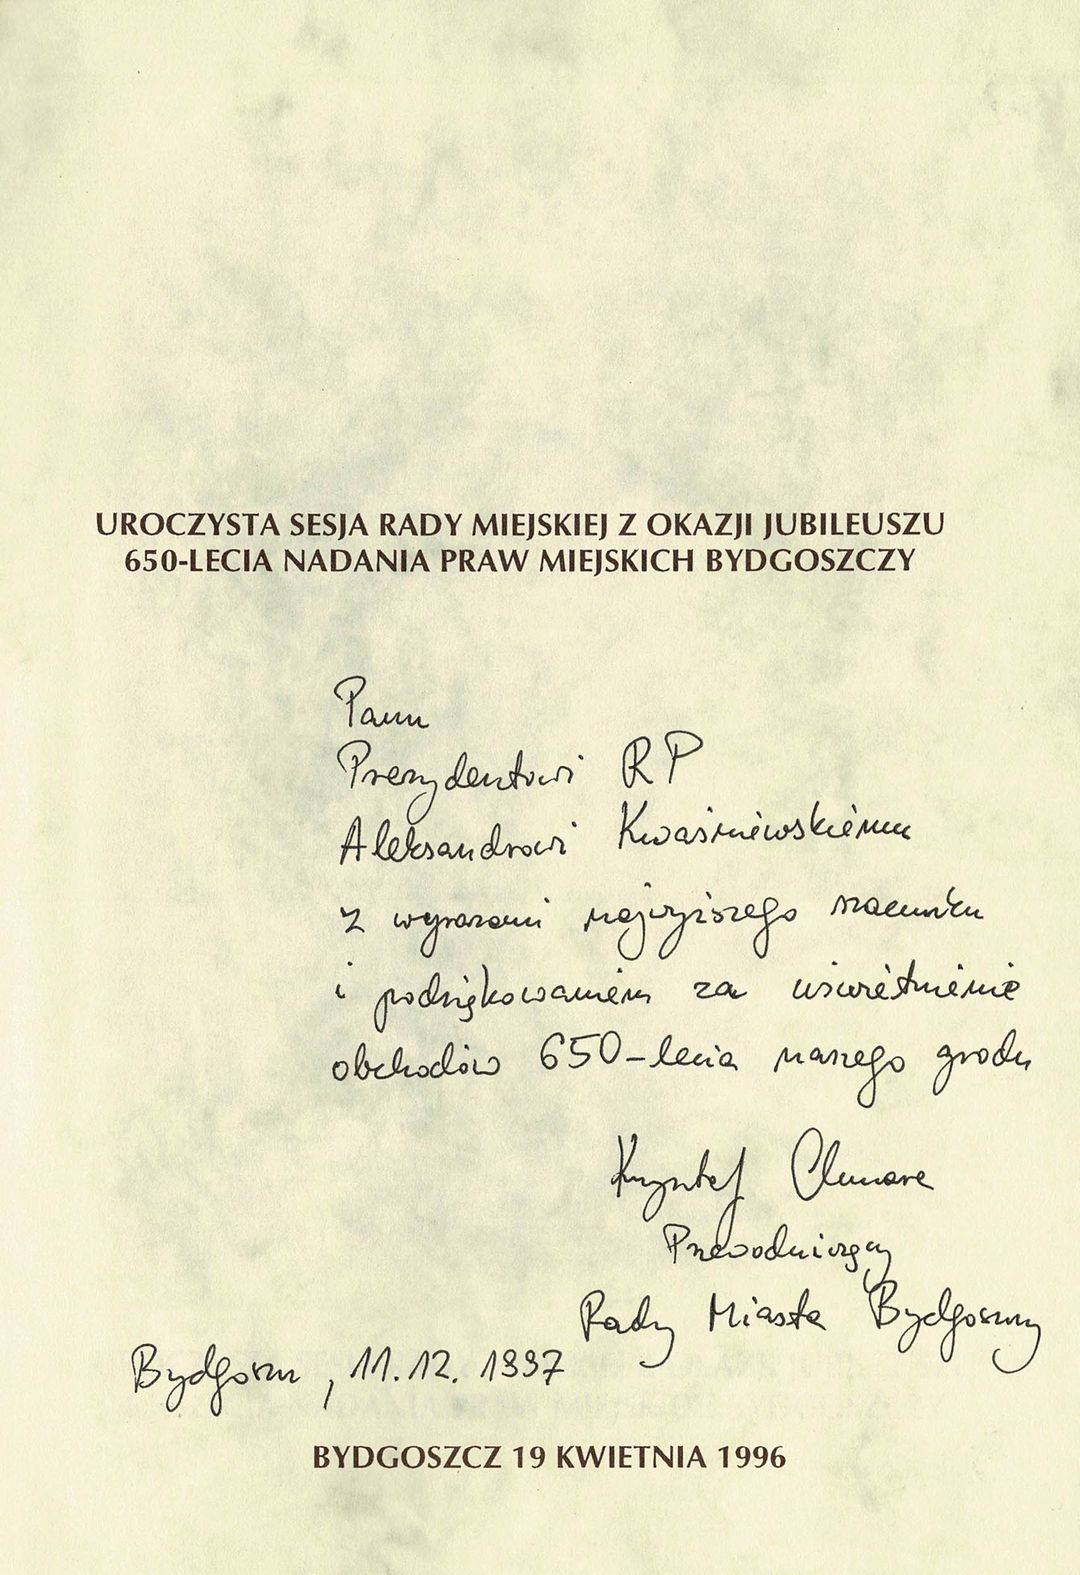 UROCZYSTA SESJA RADY MIEJSKIEJ Z OKAZJI JUBILEUSZU
650-LECIA NADANIA PRAW MIEJSKICH BYDGOSZCZY
Panu
Prezydentowi RP
Aleksandrowi Kwaśniewskiemu
z wyrazami najwyższego szacunku
i podziękowaniem za uświetnienie
obchodów 650-lecia naszego grodu
Krzysztof
Przewodniczący
Rady Miasta Bydgoszczy
Bydgoszcz, 11.12.1997
BYDGOSZCZ 19 KWIETNIA 1996